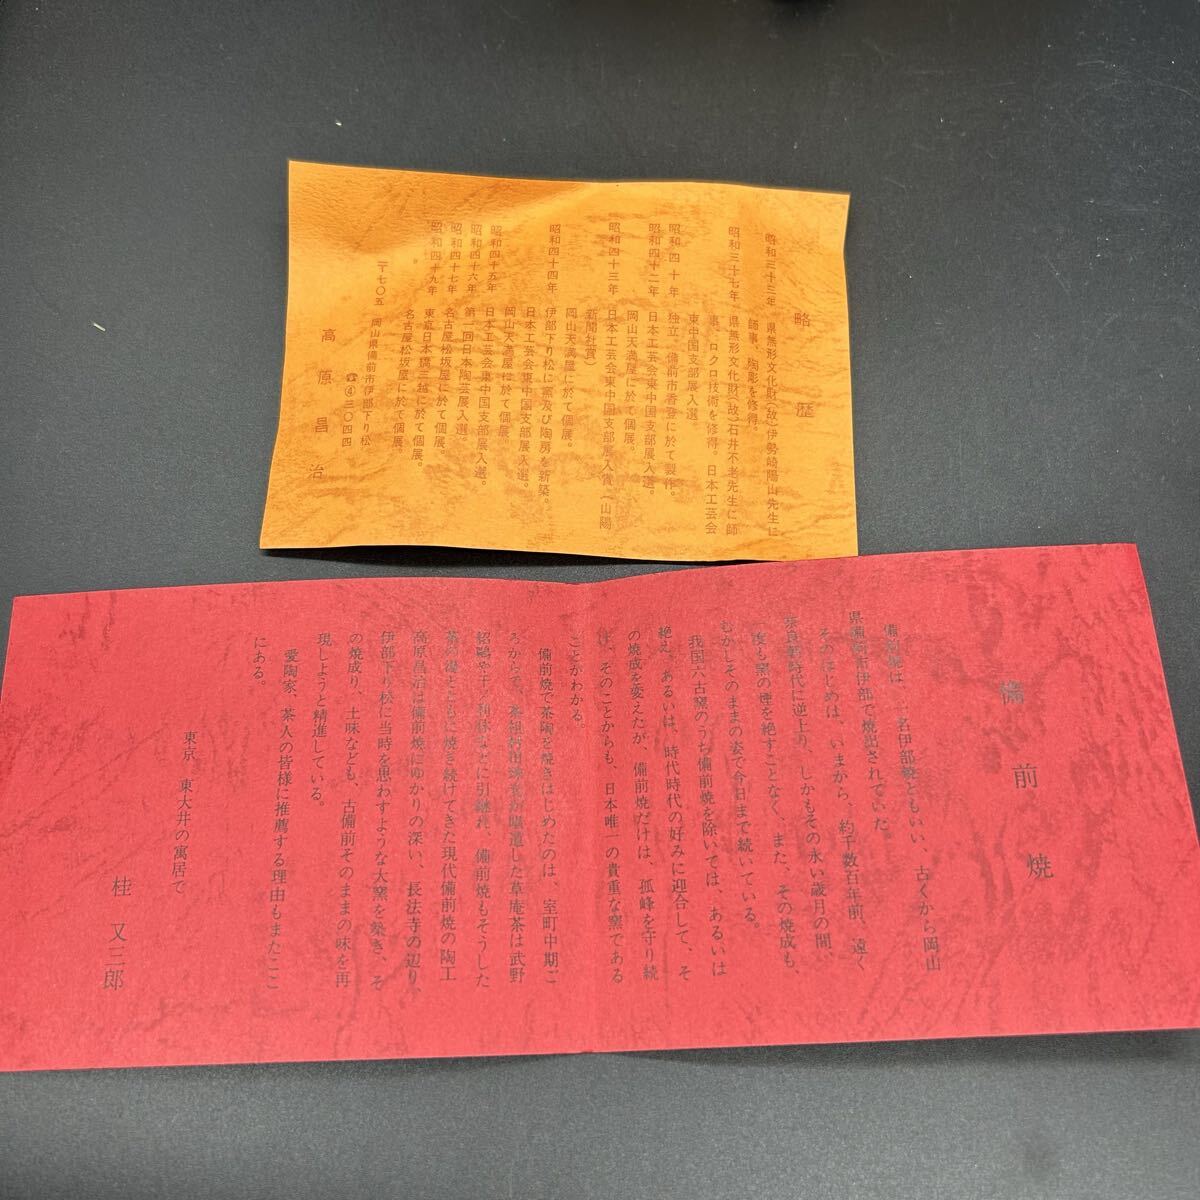 略歴
昭和三十三年 県無形文化財(故)伊勢崎陽山先生に
師事、陶彫を修得。
昭和三十七年 県無形文化財(故)石井不老先生に師
事、ロクロ技術を修得。日本工芸会
東中国支部展入選。
昭和四十年 独立。備前市香登に於て製作。
昭和四十二年 日本工芸会東中国支部展入選。
岡山天満屋に於て個展。
昭和四十三年 日本工芸会東中国支部展入賞(山陽
新聞社賞)
岡山天満屋に於て個展。
昭和四十四年 伊部下り松に窯及び陶房を新築。
日本工芸会東中国支部展入選。
岡山天満屋に於て個展。
昭和四十五年 日本工芸会東中国支部展入選。
昭和四十六年 第一回日本陶芸展入選。
昭和四十七年 名古屋松坂屋に於て個展。
昭和四十九年 東京日本橋三越に於て個展。
名古屋松坂屋に於て個展。
〒七〇五 岡山県備前市伊部下り松
☎④三〇四四
高原昌治
備前焼
備前焼は、一名伊部焼ともいい、古くから岡山
県備前市伊部で焼出されていた。
そのはじめは、いまから、約千数百年前、遠く
奈良朝時代に逆上り、しかもその永い歳月の間、
一度も窯の煙を絶すことなく、また、その焼成も、
むかしそのままの姿で今日まで続いている。
我国六古窯のうち備前焼を除いては、あるいは
絶え、あるいは、時代時代の好みに迎合して、そ
の焼成を変えたが、備前焼だけは、孤峰を守り続
け、そのことからも、日本唯一の貴重な窯である
ことがわかる。
備前焼で茶陶を焼きはじめたのは、室町中期ご
ろからで、茶祖村田珠光が唱導した草庵茶は武野
紹鷗や千ノ利休などに引継れ、備前焼もそうした
茶の湯とともに焼き続けてきた現代備前焼の陶工
高原昌治は備前焼にゆかりの深い、長法寺の辺り、
伊部下り松に当時を思わすような大窯を築き、そ
の焼成り、土味なども、古備前そのままの味を再
現しようと精進している。
愛陶家、茶人の皆様に推薦する理由もまたここ
にある。
東京 東大井の寓居で
桂又三郎